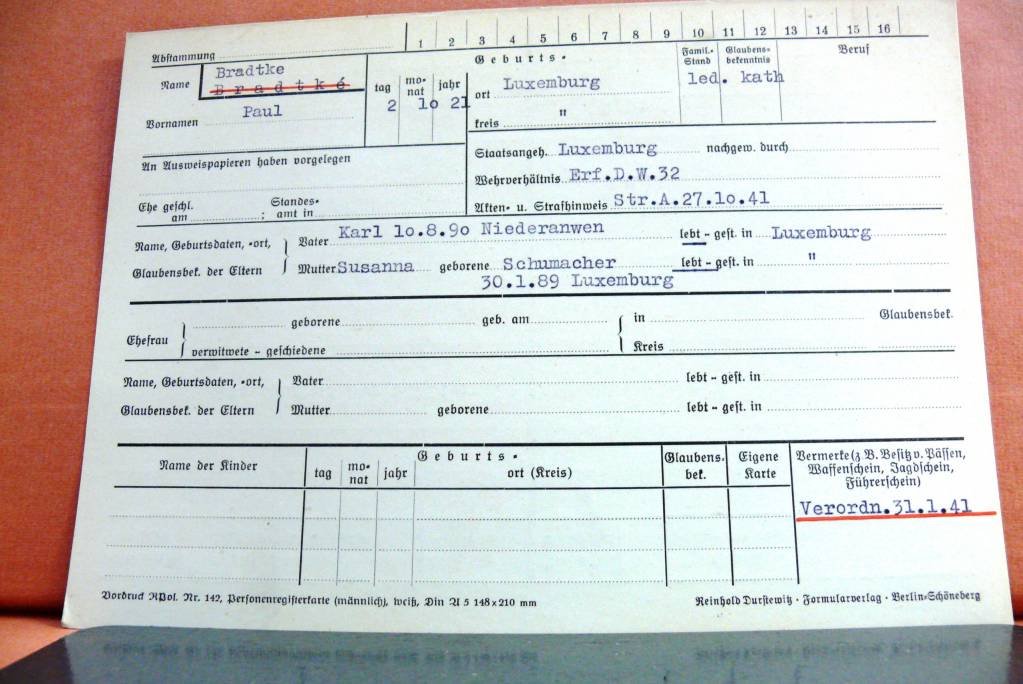 1 2 3 4 5 6 7 8 9 10 11 12 13 14 15 16
Abstammung
Name Bradtke
Bradtké
Vornamen Paul
Geburts-
tag monat jahr
2 1o 21
ort Luxemburg
kreis "
Famil.-Stand Glaubens-bekenntnis Beruf
led. kath
An Ausweispapieren haben vorgelegen
Staatsangeh. Luxemburg nachgew. durch
Wehrverhältnis Erf.D.W.32
Ehe geschl. am ; Standes-amt in
Akten- u. Strafhinweis Str.A.27.1o.41
Name, Geburtsdaten, -ort,
Glaubensbek. der Eltern
Vater Karl 1o.8.9o Niederanwen lebt - gest. in Luxemburg
Mutter Susanna geborene Schumacher lebt - gest. in "
30.1.89 Luxemburg
Ehefrau geborene geb. am in Glaubensbek.
verwitwete - geschiedene Kreis
Name, Geburtsdaten, -ort,
Glaubensbek. der Eltern
Vater lebt - gest. in
Mutter geborene lebt - gest. in
Name der Kinder
Geburts-
tag monat jahr ort (Kreis)
Glaubens-bek.
Eigene Karte
Vermerke (z B. Besitz v. Pässen,
Waffenschein, Jagdschein,
Führerschein)
Verordn.31.1.41
Vordruck RPol. Nr. 142, Personenregisterkarte (männlich), weiß, Din A 5 148 x 210 mm
Reinhold Durstewitz · Formularverlag · Berlin-Schöneberg